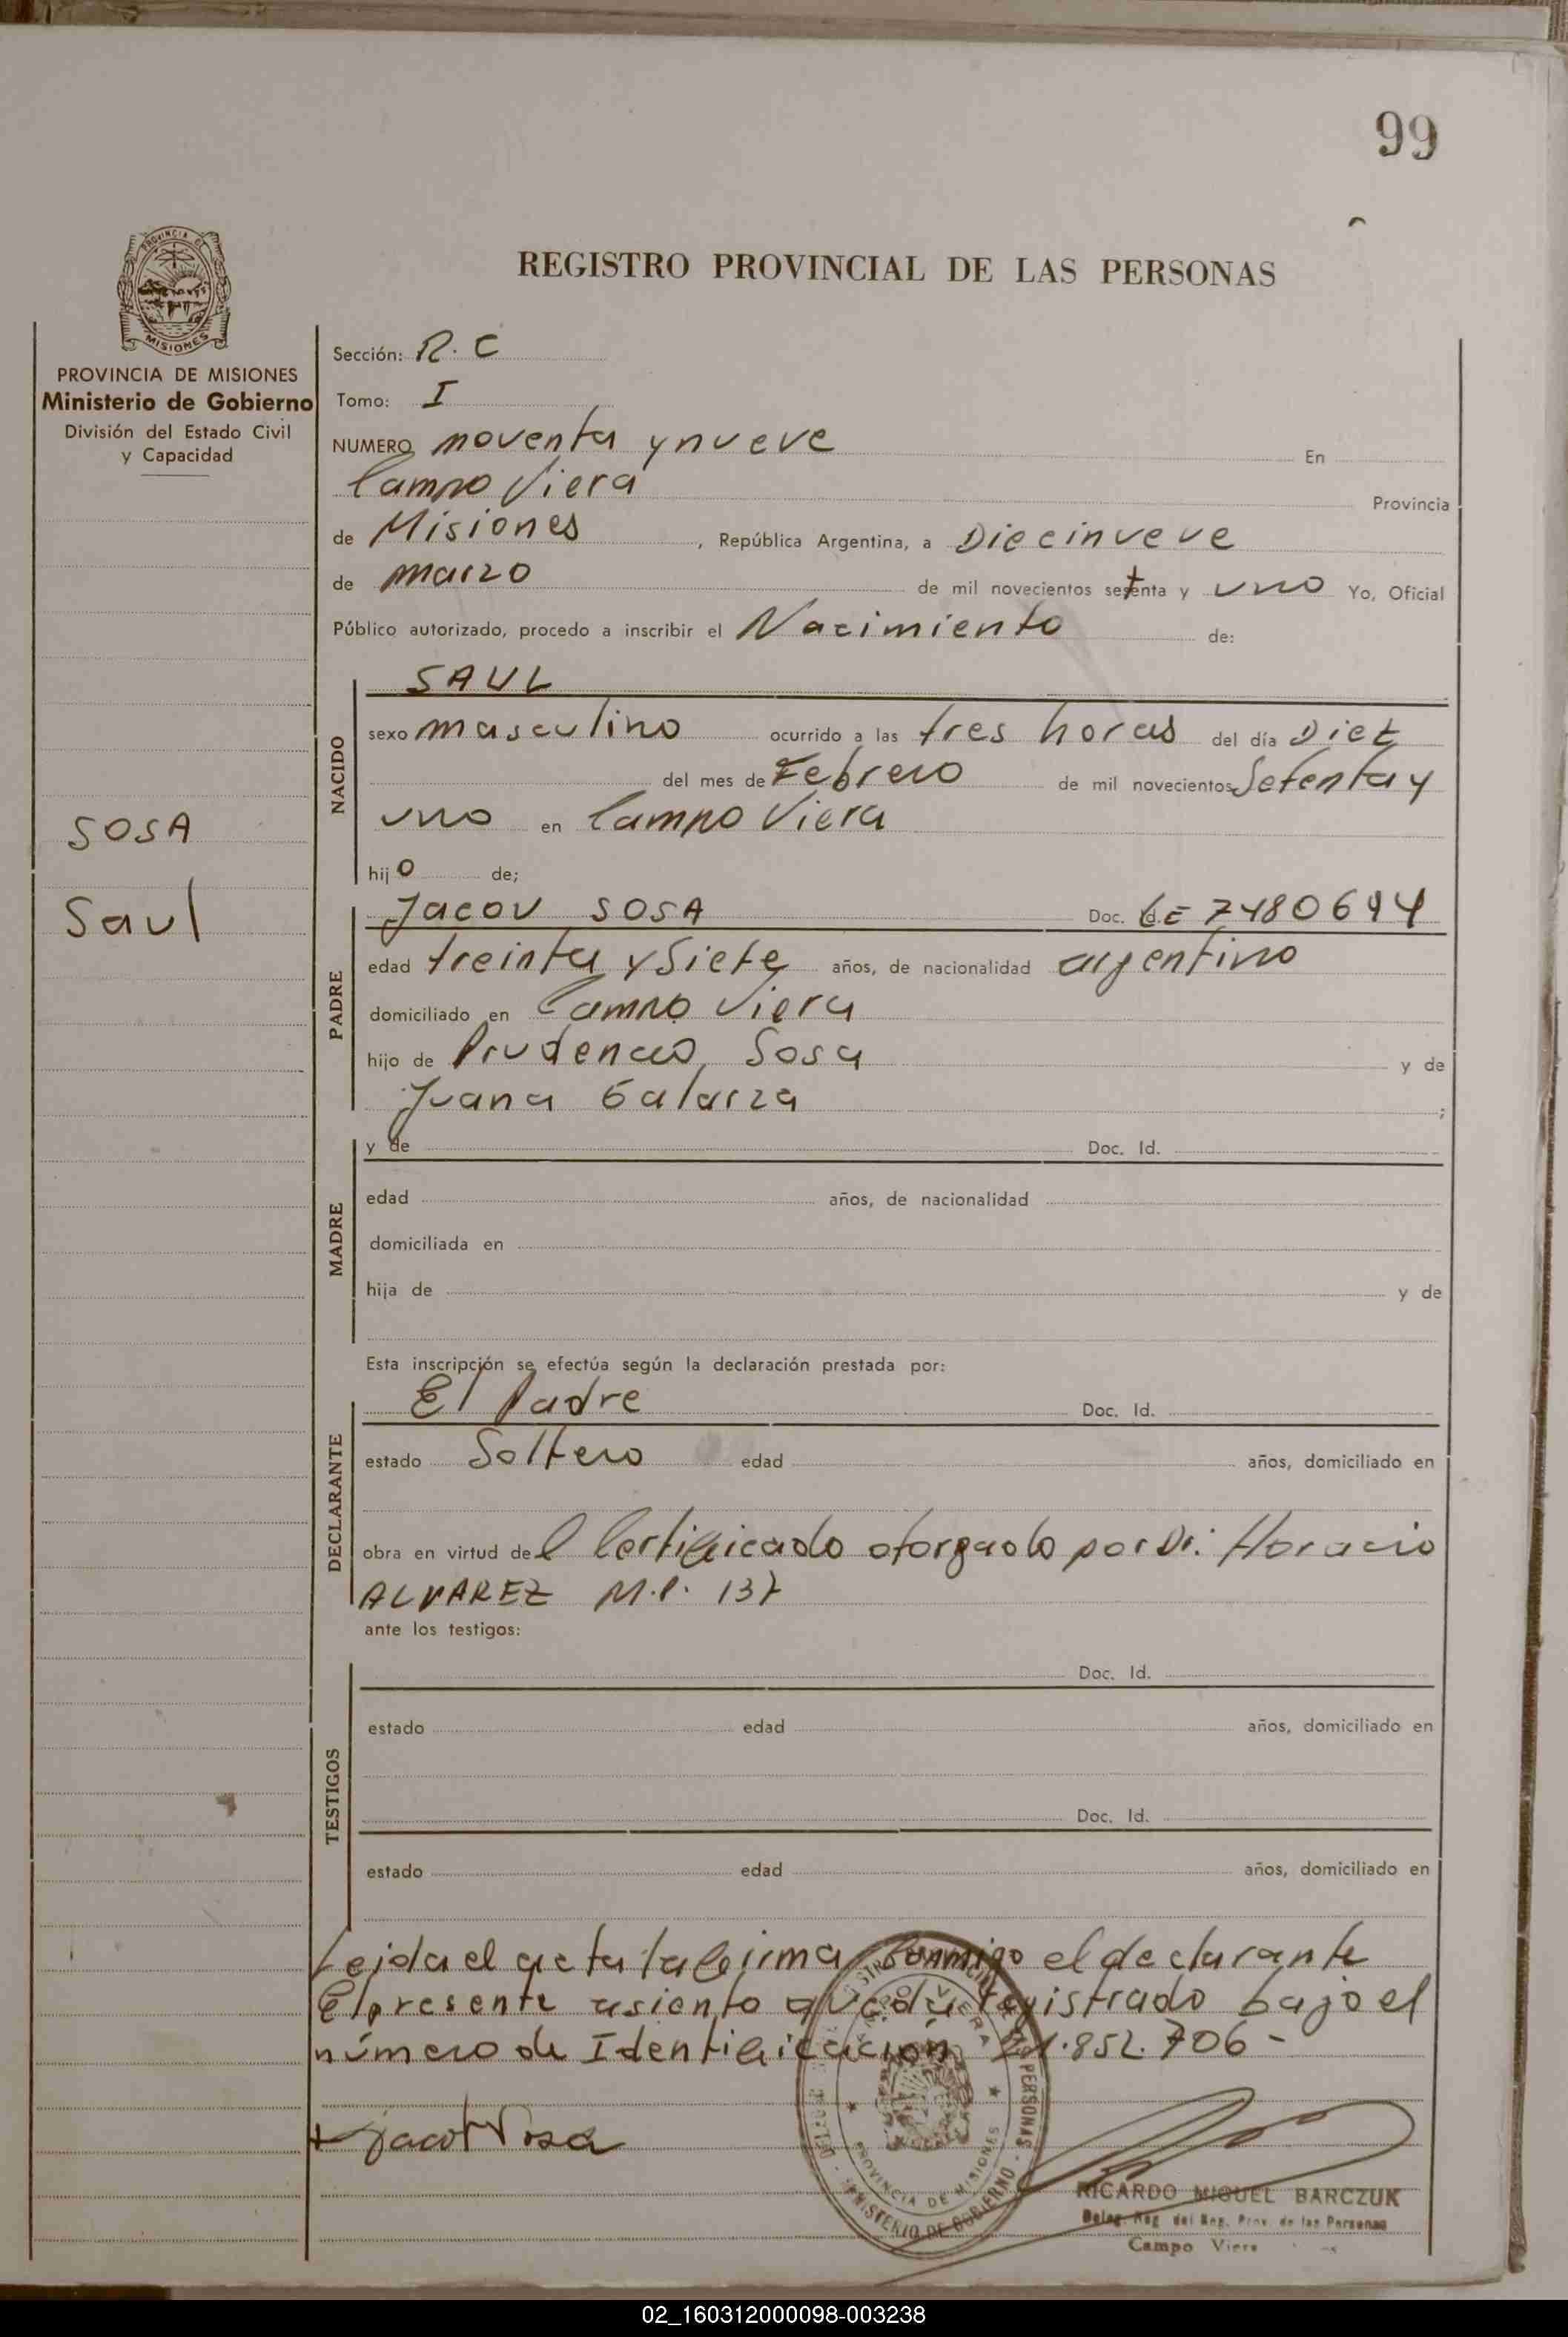 99
REGISTRO PROVINCIAL DE LAS PERSONAS
PROVINCIA DE MISIONES
Ministerio de Gobierno
División del Estado Civil
y Capacidad
SOSA
Saul
Sección: R.C
Tomo: I
NUMERO noventa y nueve En
Campo Viera Provincia
de Misiones, República Argentina, a Diecinueve
de marzo de mil novecientos setenta y uno Yo, Oficial
Público autorizado, procedo a inscribir el Nacimiento de:
NACIDO
SAUL
sexo masculino ocurrido a las tres horas del día Diez
del mes de Febrero de mil novecientos Setenta y
uno en Campo Viera
hijo de;
PADRE
Jacov SOSA Doc. LE 7480694
edad treinta y Siete años, de nacionalidad argentino
domiciliado en Campo Viera
hijo de Prudencio Sosa y de
Juana Galarza ;
MADRE
y de Doc. Id.
edad años, de nacionalidad
domiciliada en
hija de y de
Esta inscripción se efectúa según la declaración prestada por:
DECLARANTE
El Padre Doc. Id.
estado Soltero edad años, domiciliado en
obra en virtud del Certificado otorgado por Dr. Horacio
ALVAREZ M.P. 137
ante los testigos:
TESTIGOS
Doc. Id.
estado edad años, domiciliado en
Doc. Id.
estado edad años, domiciliado en
Leida el acta la firma Conmigo el declarante
El presente asiento queda registrado bajo el
número de Identificación 21.852.706-
Jacov Sosa
PROVINCIA DE MISIONES
MINISTERIO DE GOBIERNO
RICARDO MIGUEL BARCZUK
Deleg. Reg. del Reg. Prov. de las Personas
Campo Viera
02_160312000098-003238